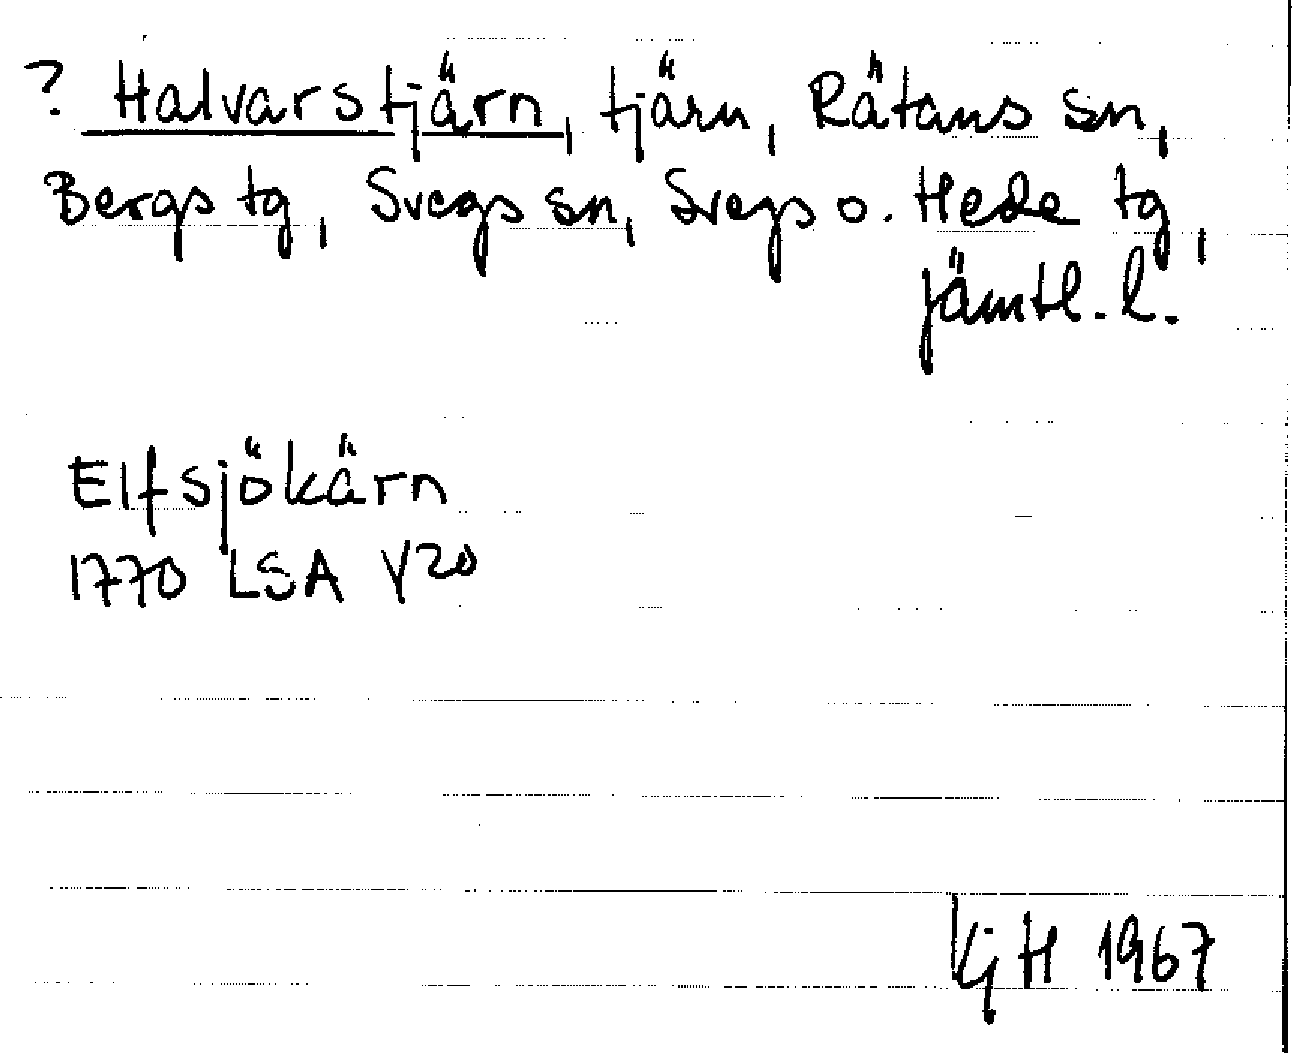 ? Halvarstjärn, tjärn, Rätans sn,
Bergs tg, Svegs sn, Svegs o. Hede tg,
Jämtl. l.
Elfsjökärn
1770 LSA Y20
KjH 1967